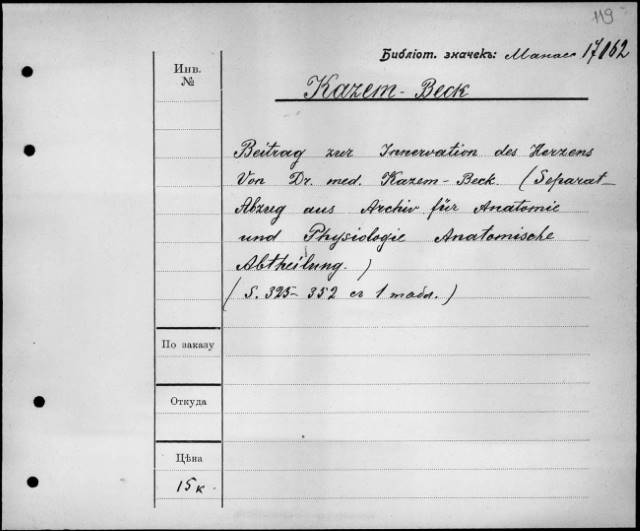 119
Библіот. значекъ: Манас 17/162
Инв.
№
Kazem-Beck
Beitrag zur Innervation des Herzens
Von Dr. med. Kazem-Beck. (Separat-
Abzug aus Archiv für Anatomie
und Physiologie Anatomische
Abtheilung.)
(S. 325-352 съ 1 табл.)
По заказу
Откуда
Цѣна
15 к